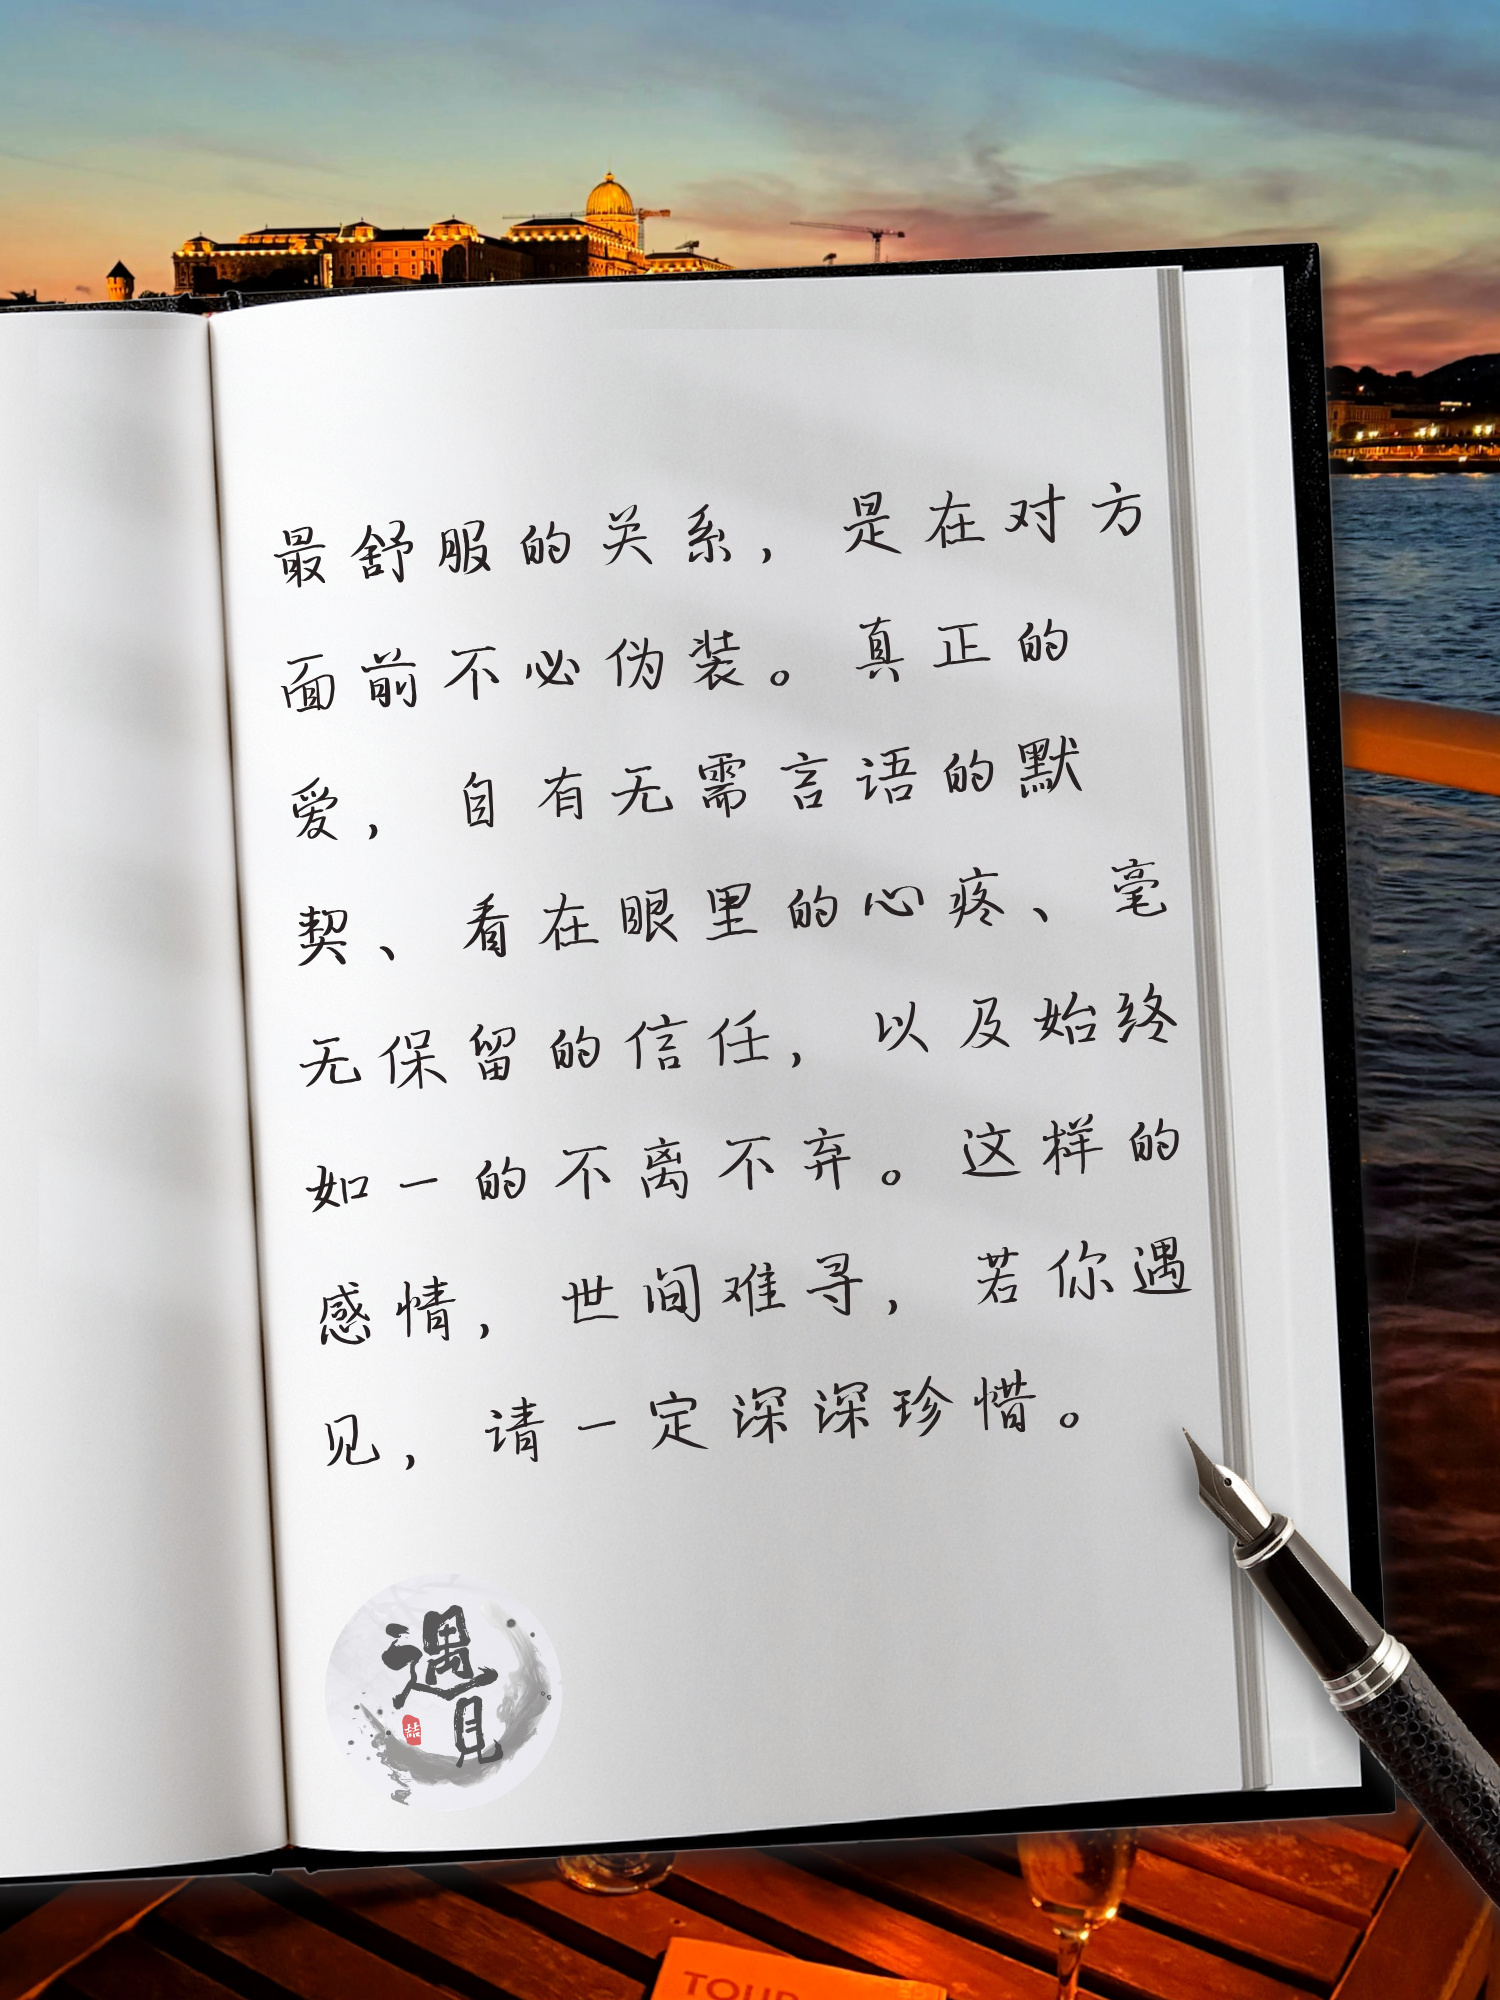 最舒服的关系，是在对方
面前不必伪装。真正的
爱，自有无需言语的默
契、看在眼里的心疼、毫
无保留的信任，以及始终
如一的不离不弃。这样的
感情，世间难寻，若你遇
见，请一定深深珍惜。
遇
見
喆
TOUR